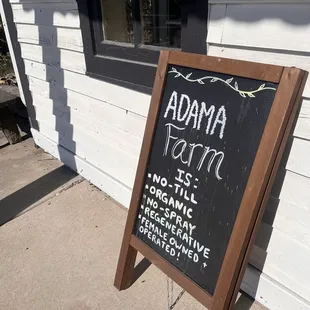 ADAMA
Farm
IS:
• NO-TILL
• ORGANIC
• NO-SPRAY
• REGENERATIVE
• FEMALE OWNED
OPERATED!